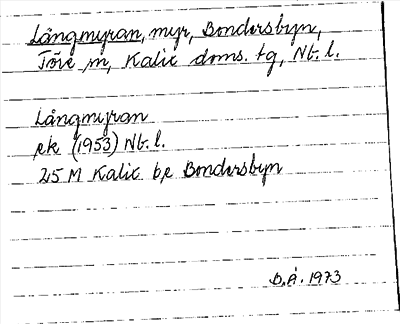 Långmyran, myr, Bondersbyn,
Töre sn, Kalix doms. tg, Nt. l.
Långmyran
ek (1953) Nt. l.
25 M Kalix be Bondersbyn
D.Å. 1973